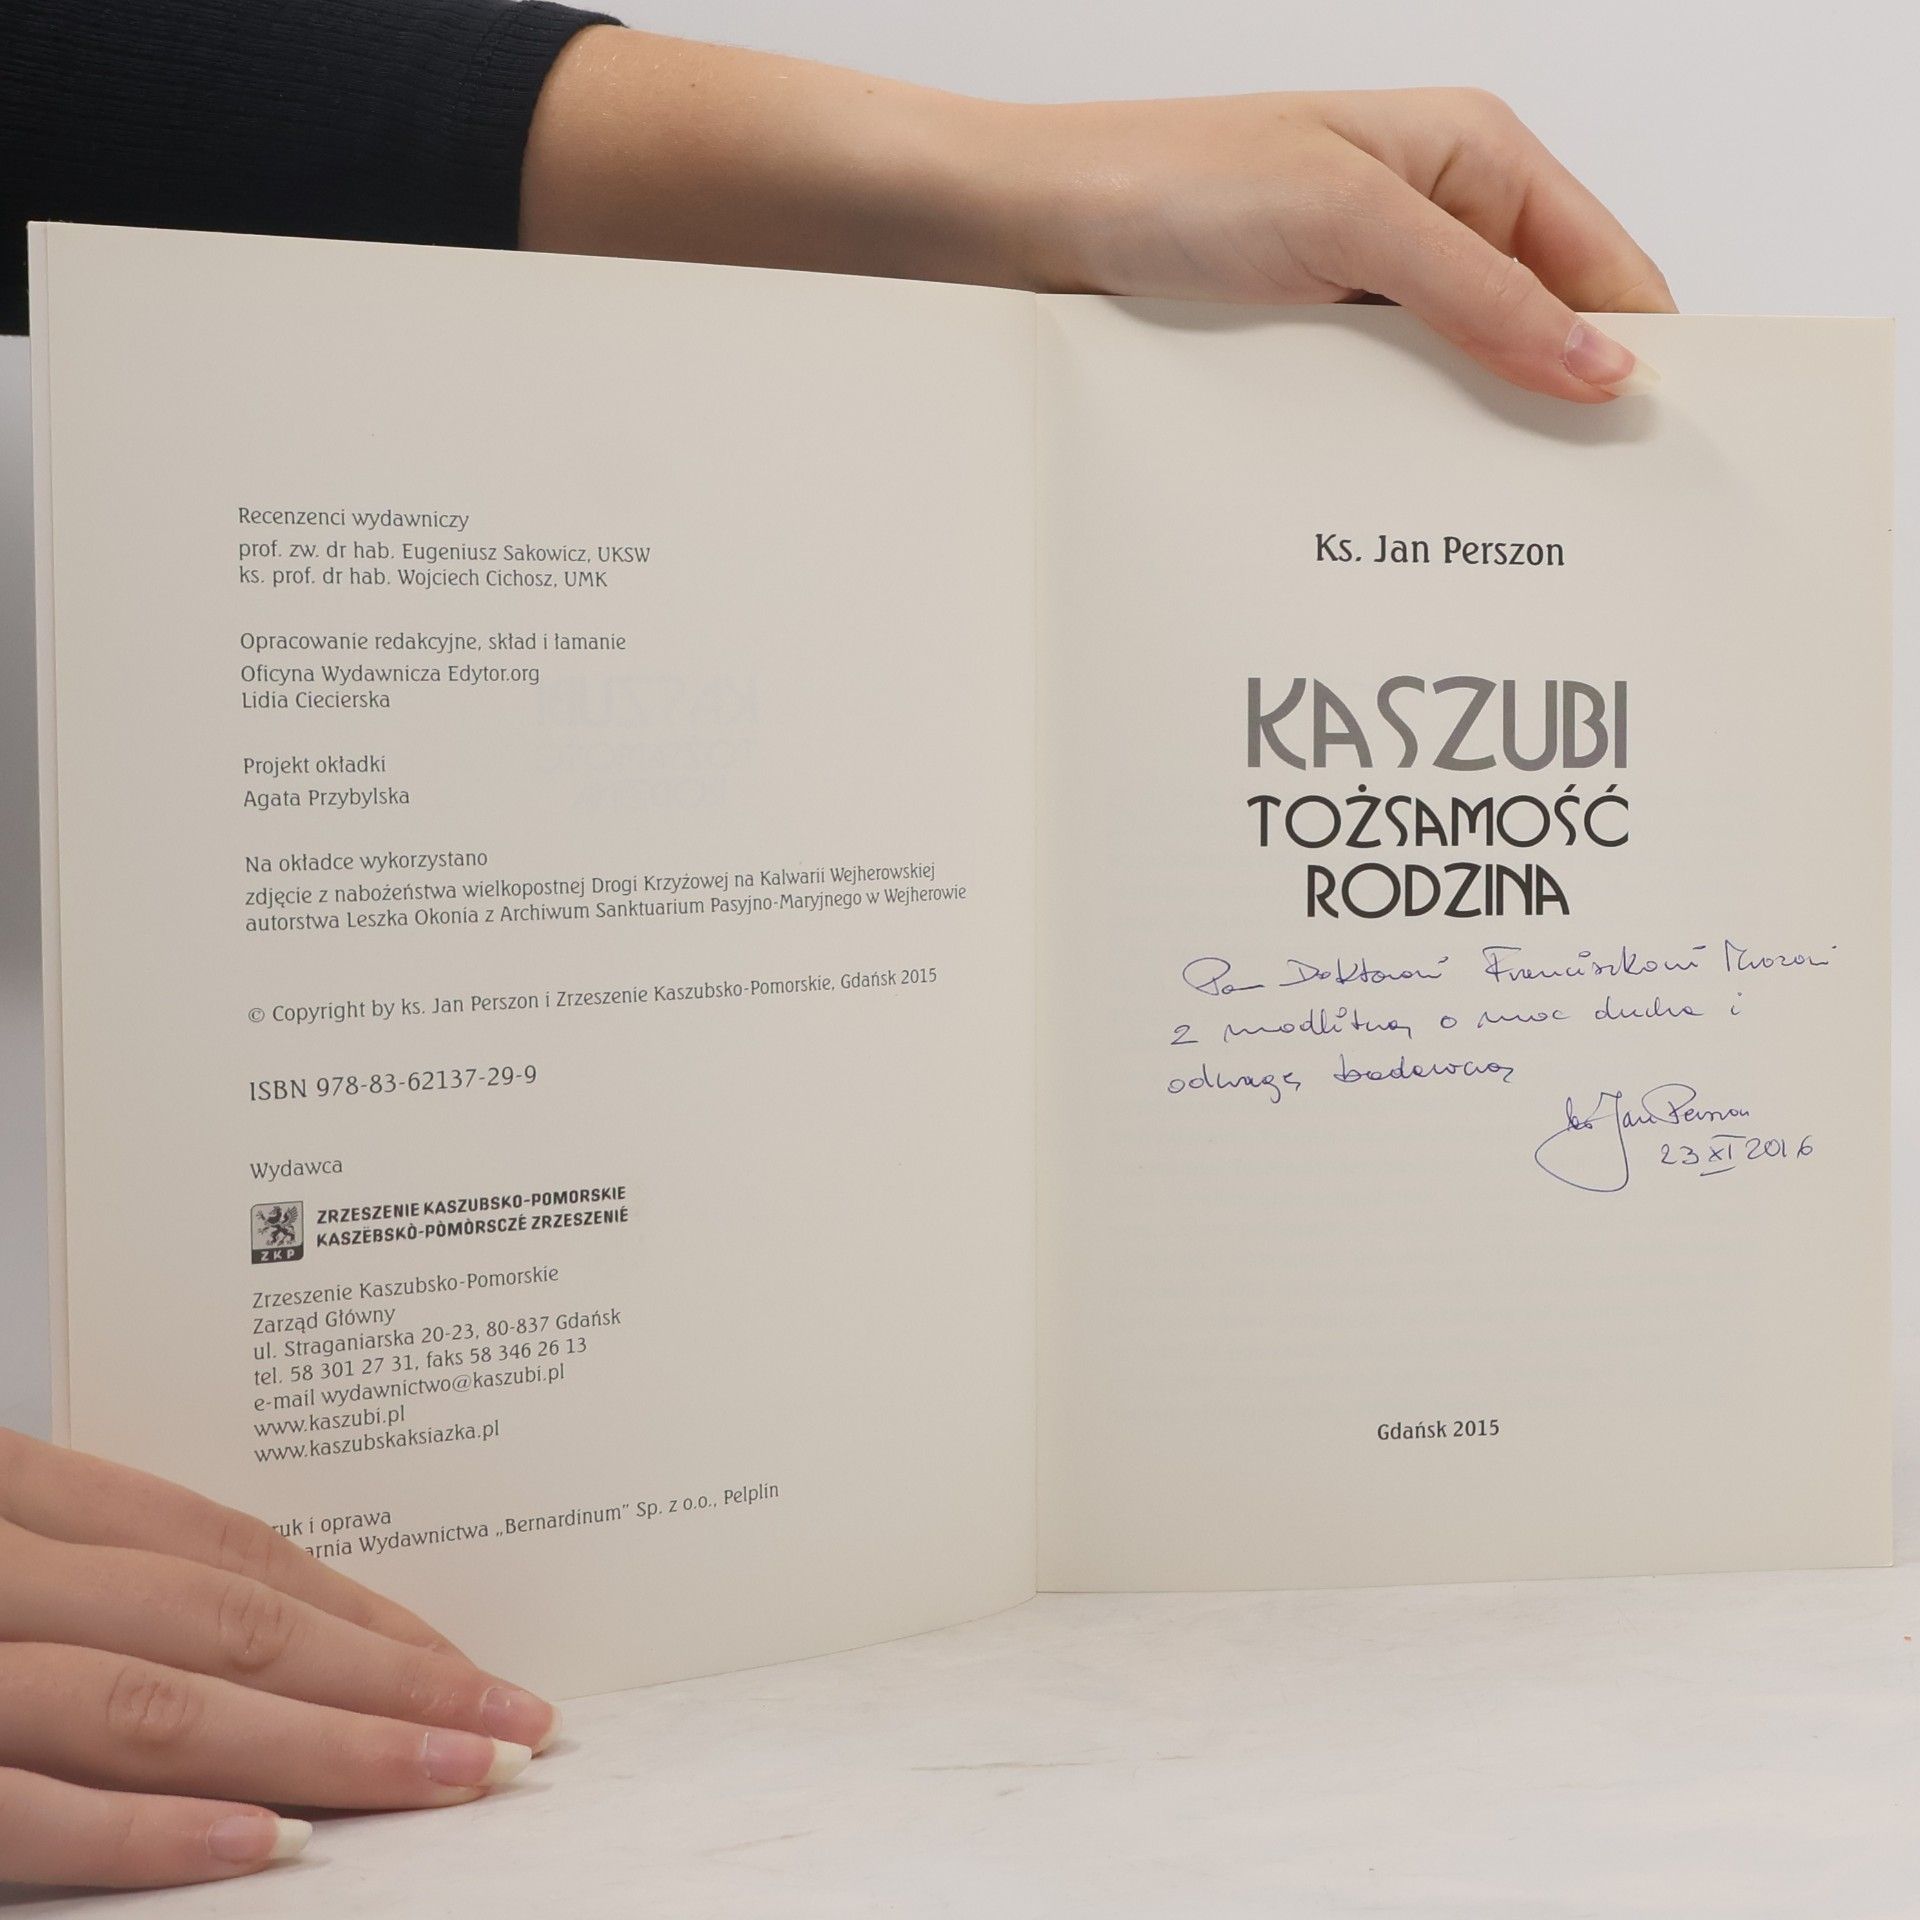 Recenzenci wydawniczy
prof. zw. dr hab. Eugeniusz Sakowicz, UKSW
ks. prof. dr hab. Wojciech Cichosz, UMK
Opracowanie redakcyjne, skład i łamanie
Oficyna Wydawnicza Edytor.org
Lidia Ciecierska
Projekt okładki
Agata Przybylska
Na okładce wykorzystano
zdjęcie z nabożeństwa wielkopostnej Drogi Krzyżowej na Kalwarii Wejherowskiej
autorstwa Leszka Okonia z Archiwum Sanktuarium Pasyjno-Maryjnego w Wejherowie
© Copyright by ks. Jan Perszon i Zrzeszenie Kaszubsko-Pomorskie, Gdańsk 2015
ISBN 978-83-62137-29-9
Wydawca
ZKP
ZRZESZENIE KASZUBSKO-POMORSKIE
KASZËBSKÒ-PÒMÒRSCZÉ ZRZESZENIÉ
Zrzeszenie Kaszubsko-Pomorskie
Zarząd Główny
ul. Straganiarska 20-23, 80-837 Gdańsk
tel. 58 301 27 31, faks 58 346 26 13
e-mail wydawnictwo@kaszubi.pl
www.kaszubi.pl
www.kaszubskaksiazka.pl
ruk i oprawa
arnia Wydawnictwa „Bernardinum” Sp. z o.o., Pelplin
Ks. Jan Perszon
KASZUBI
TOŻSAMOŚĆ
RODZINA
Doktorowi Franciszkowi
z modlitwą o moc ducha i
odwagę badawczą
ks Jan Perszon
23 XI 2016
Gdańsk 2015